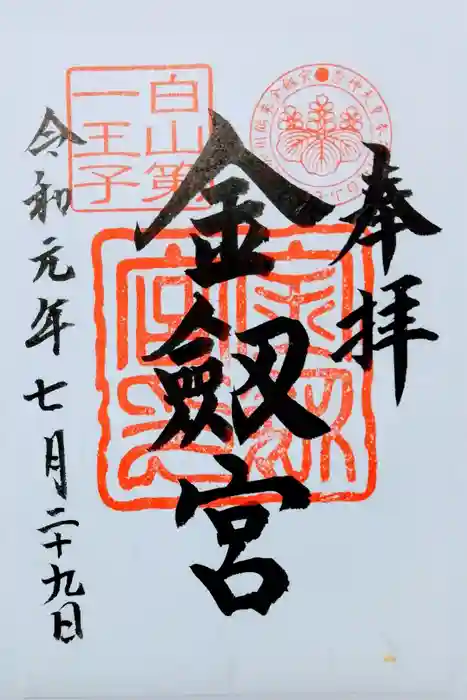 奉拝
金劔宮
白山第
一王子
令和元年七月二十九日